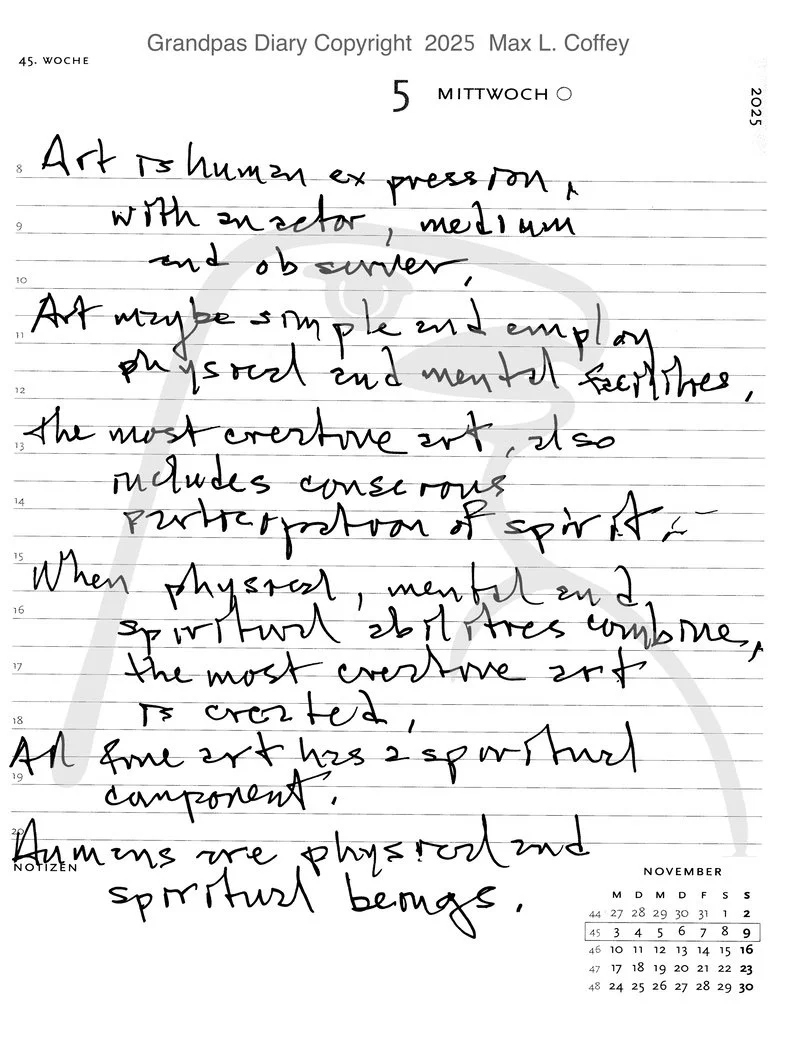 Grandpas Diary Copyright 2025 Max L. Coffey
45. WOCHE
5 MITTWOCH
2025
8
Art is human expression,
with an actor, medium
9
and observer.
10
Art may be simple and employ
11
physical and mental facilities.
12
The most creative art, also
13
includes conscious
14
participation of spirit.
15
When physical, mental and
16
spiritual abilities combine,
17
the most creative art
18
is created.
All fine art has a spiritual
19
component.
20
Humans are physical and
NOTIZEN
spiritual beings.
NOVEMBER
M D M D F S S
44 27 28 29 30 31 1 2
45 3 4 5 6 7 8 9
46 10 11 12 13 14 15 16
47 17 18 19 20 21 22 23
48 24 25 26 27 28 29 30